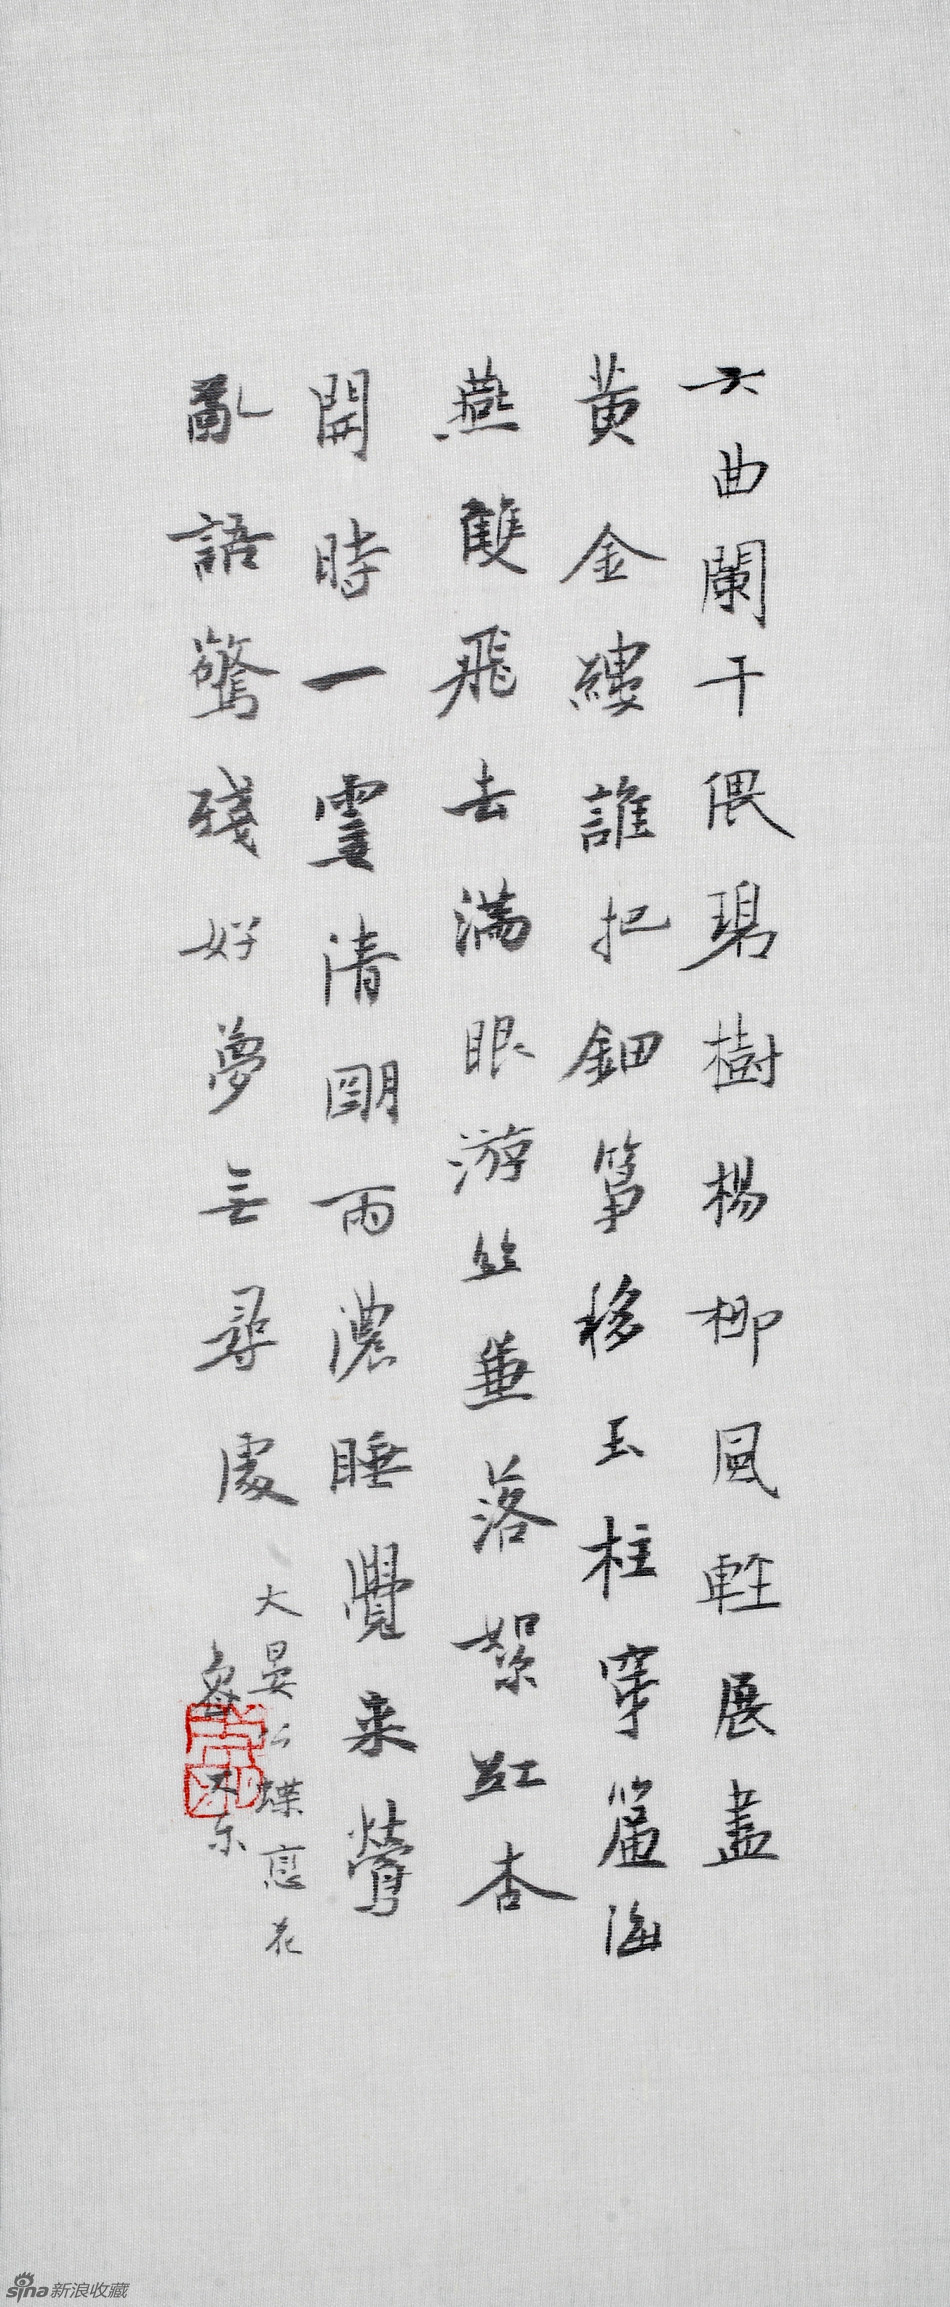 六曲闌干偎碧樹楊柳風輕展盡
黃金縷誰把鈿箏移玉柱穿簾海
燕雙飛去滿眼游絲兼落絮紅杏
開時一霎清明雨濃睡覺来鶯
亂語驚殘好夢無尋處
大晏 蝶恋花
sina新浪收藏